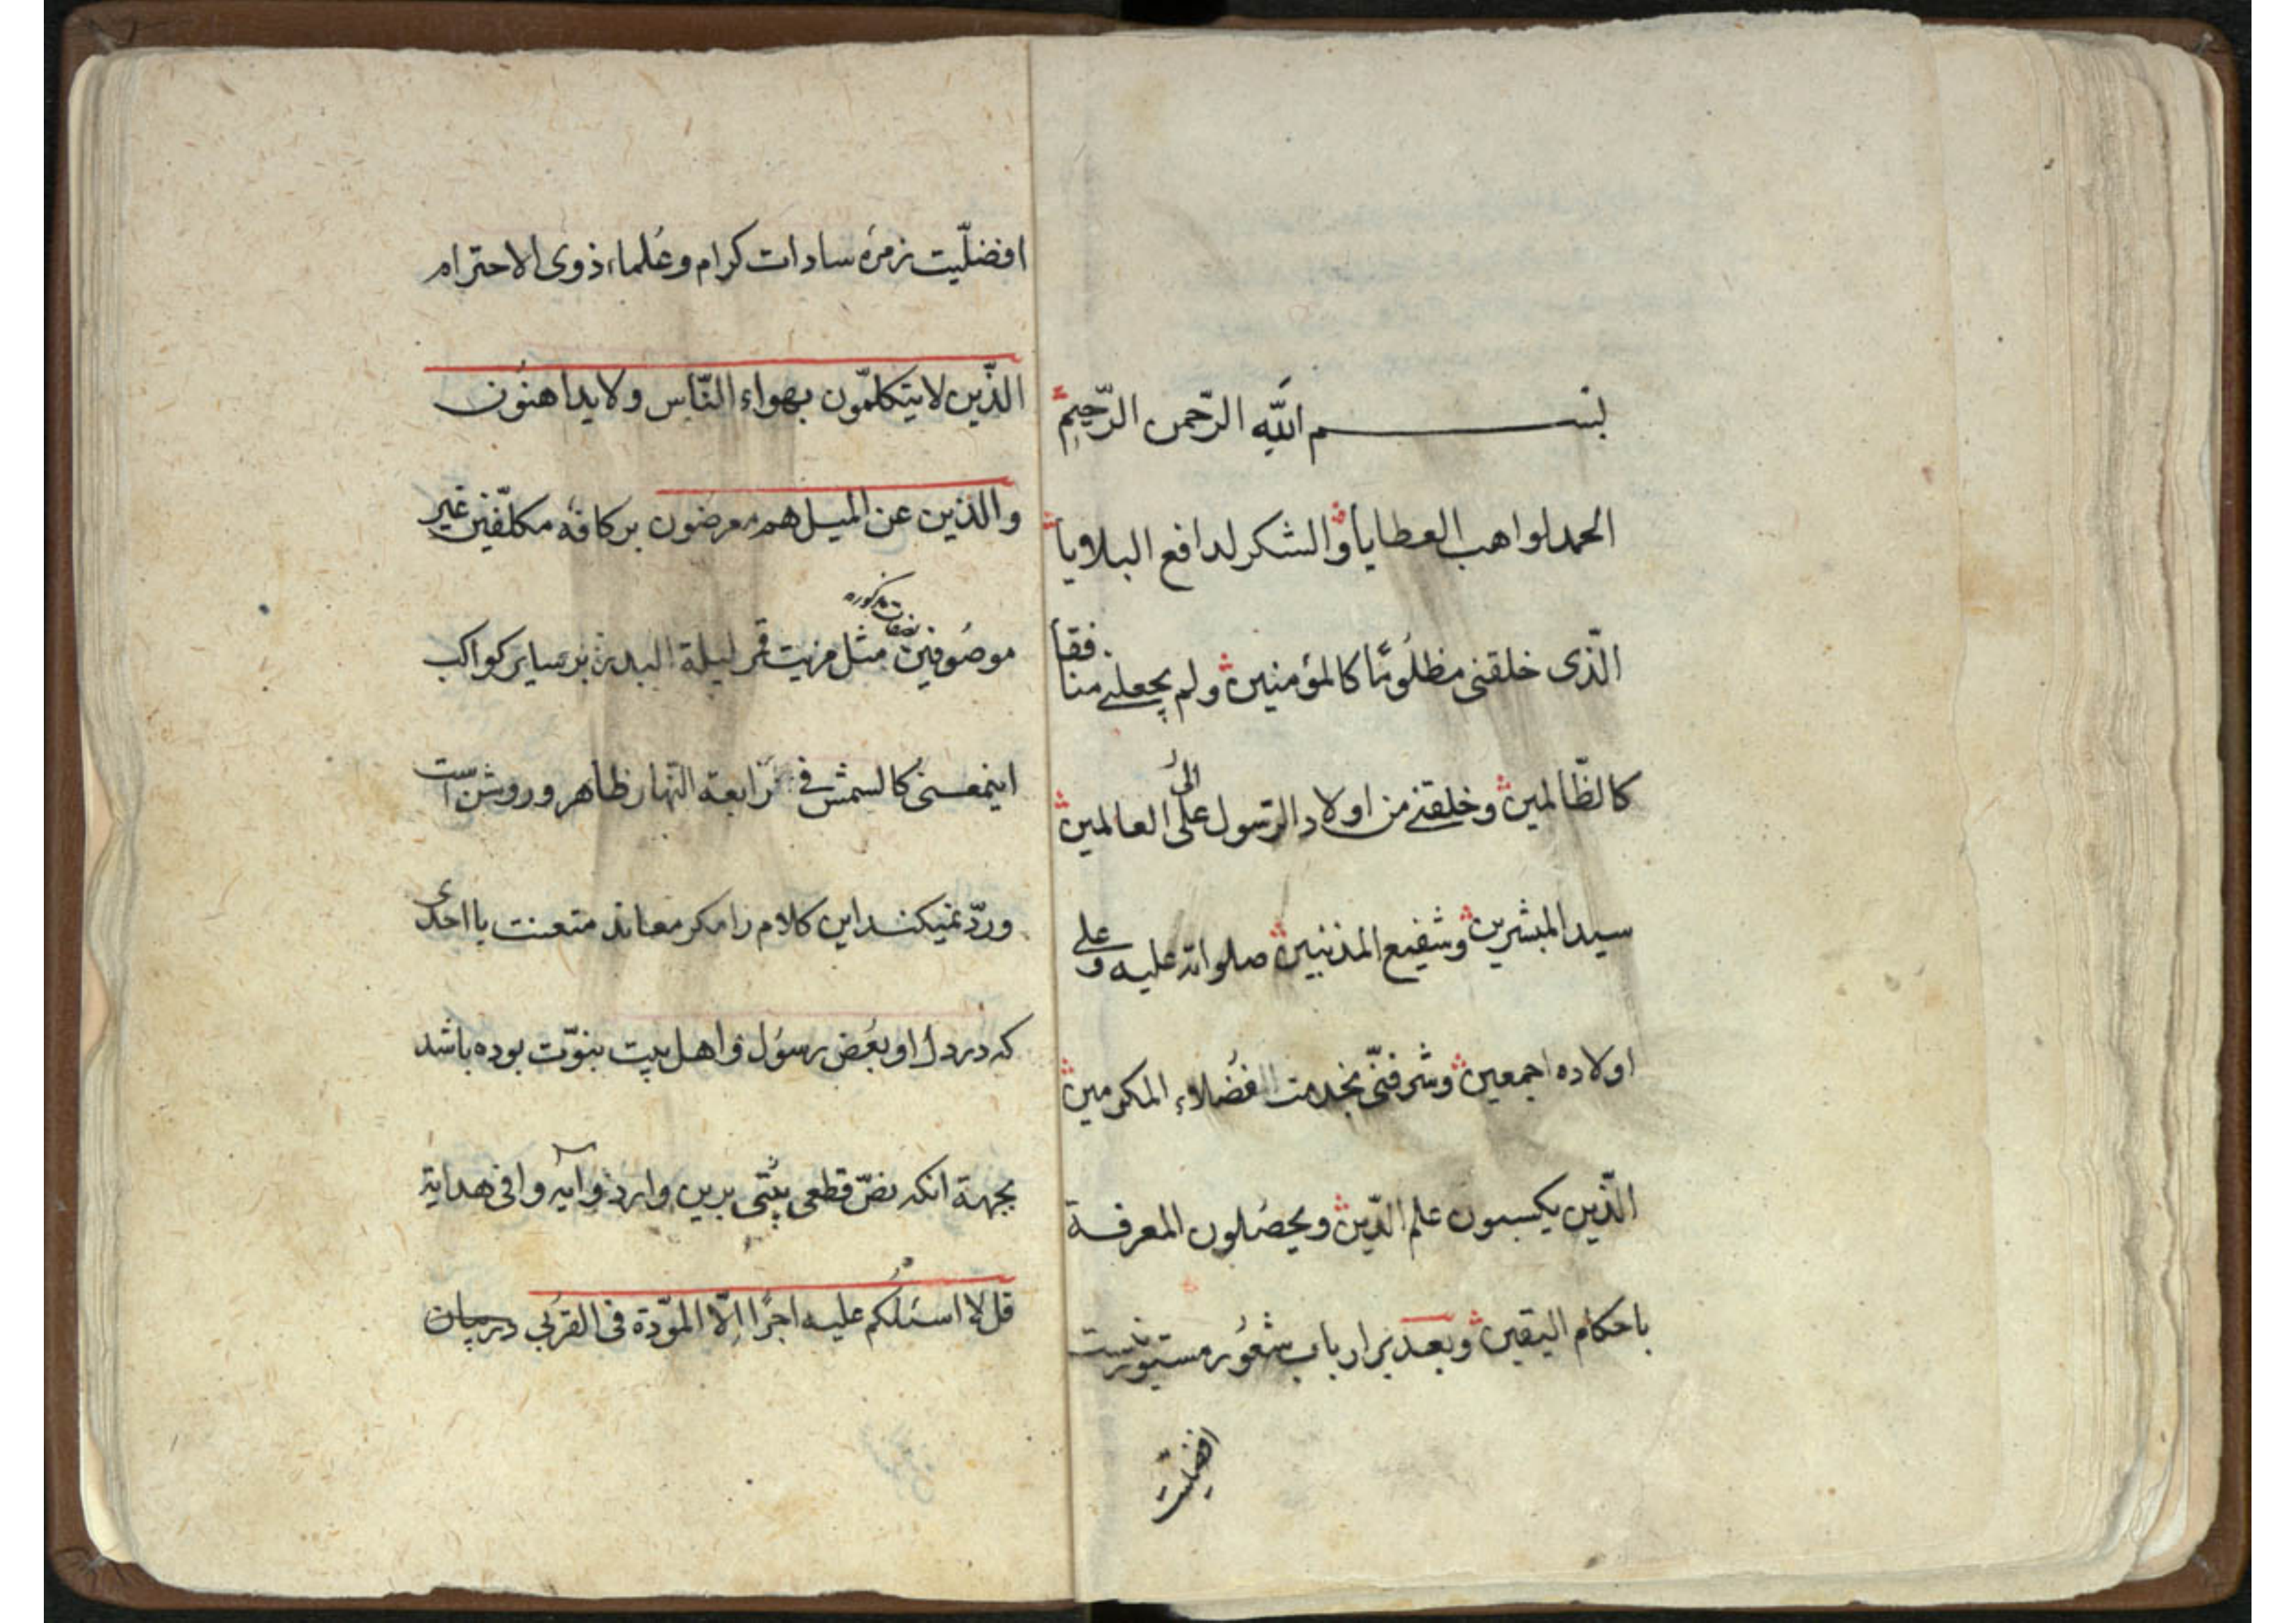 بسم الله الرّحمن الرّحيم
الحمد لواهب العطايا والشكر لدافع البلايا
الّذى خلقنى مظلومًا كالمؤمنين ولم يجعلنى منافقا
كالظّالمين وخلقنى من اولاد الرّسول على الى العالمين
سيد المبشرين وشفيع المذنبين صلوات عليه وعلى
اولاده اجمعين وشرفنّى بخدمت الفضلاء المكرمين
الّذين يكسبون علم الدّين ويحصلون المعرفة
باحكام اليقين وبعد بر ارباب شعور مستور نيست
افضليت
افضلّيت زمره سادات كرام وعُلماء ذوى الاحترام
الذّين لا يتكلمّون بهواء النّاس ولا يداهنون
والذين عن الميل هم معرضون بر كافه مكلّفين غير
موصُوفين بصفات مذكوره مثل مزيت قمر ليلة البدر بر ساير كواكب
اينمعنى كالشمس فى رابعة النّهار ظاهر وروشن است
وردّ نميكند اين كلام را مكر معاند متعنت يا احدى
كه در دل او بغض رسُول و اهل بيت نبوّت بوده باشد
بجهة انكه نصّ قطعى برين وارد و آيه وافى هداية
قل لا اسئلكم عليه اجرًا الّا المودّة فى القربى درميان